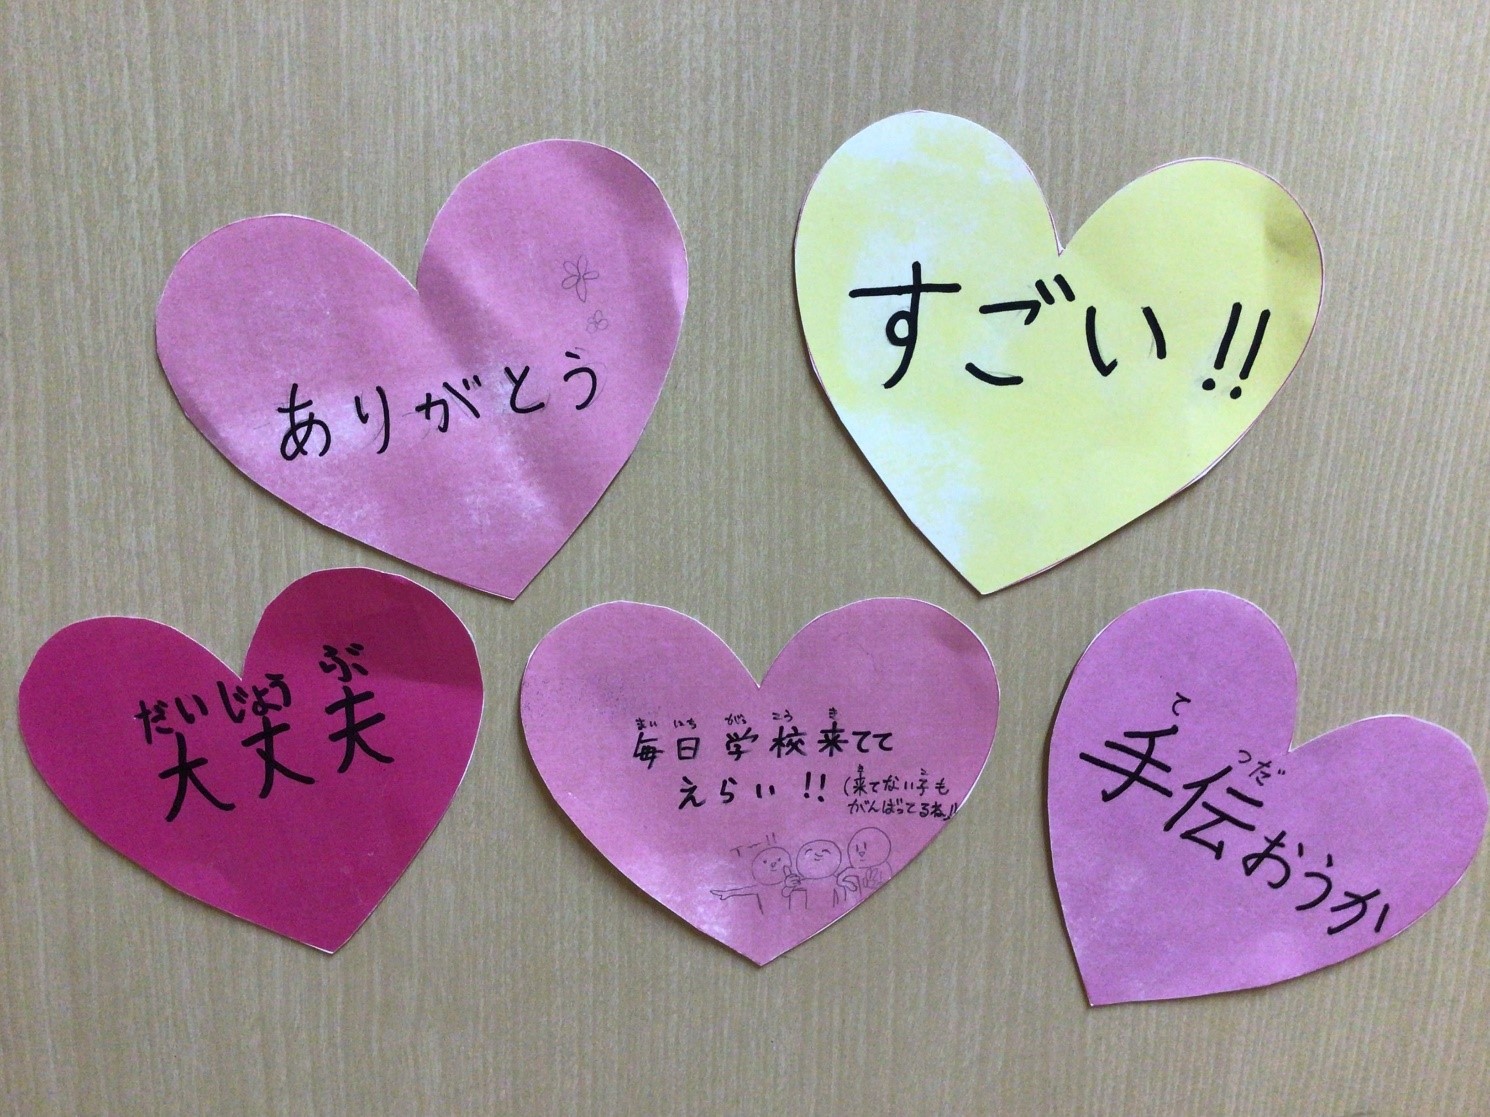 ありがとう
すごい!!
だいじょうぶ
大丈夫
まいにち がっこう き
毎日学校来てて
えらい!! (来てない子も
がんばってるね!!)
て つだ
手伝おうか